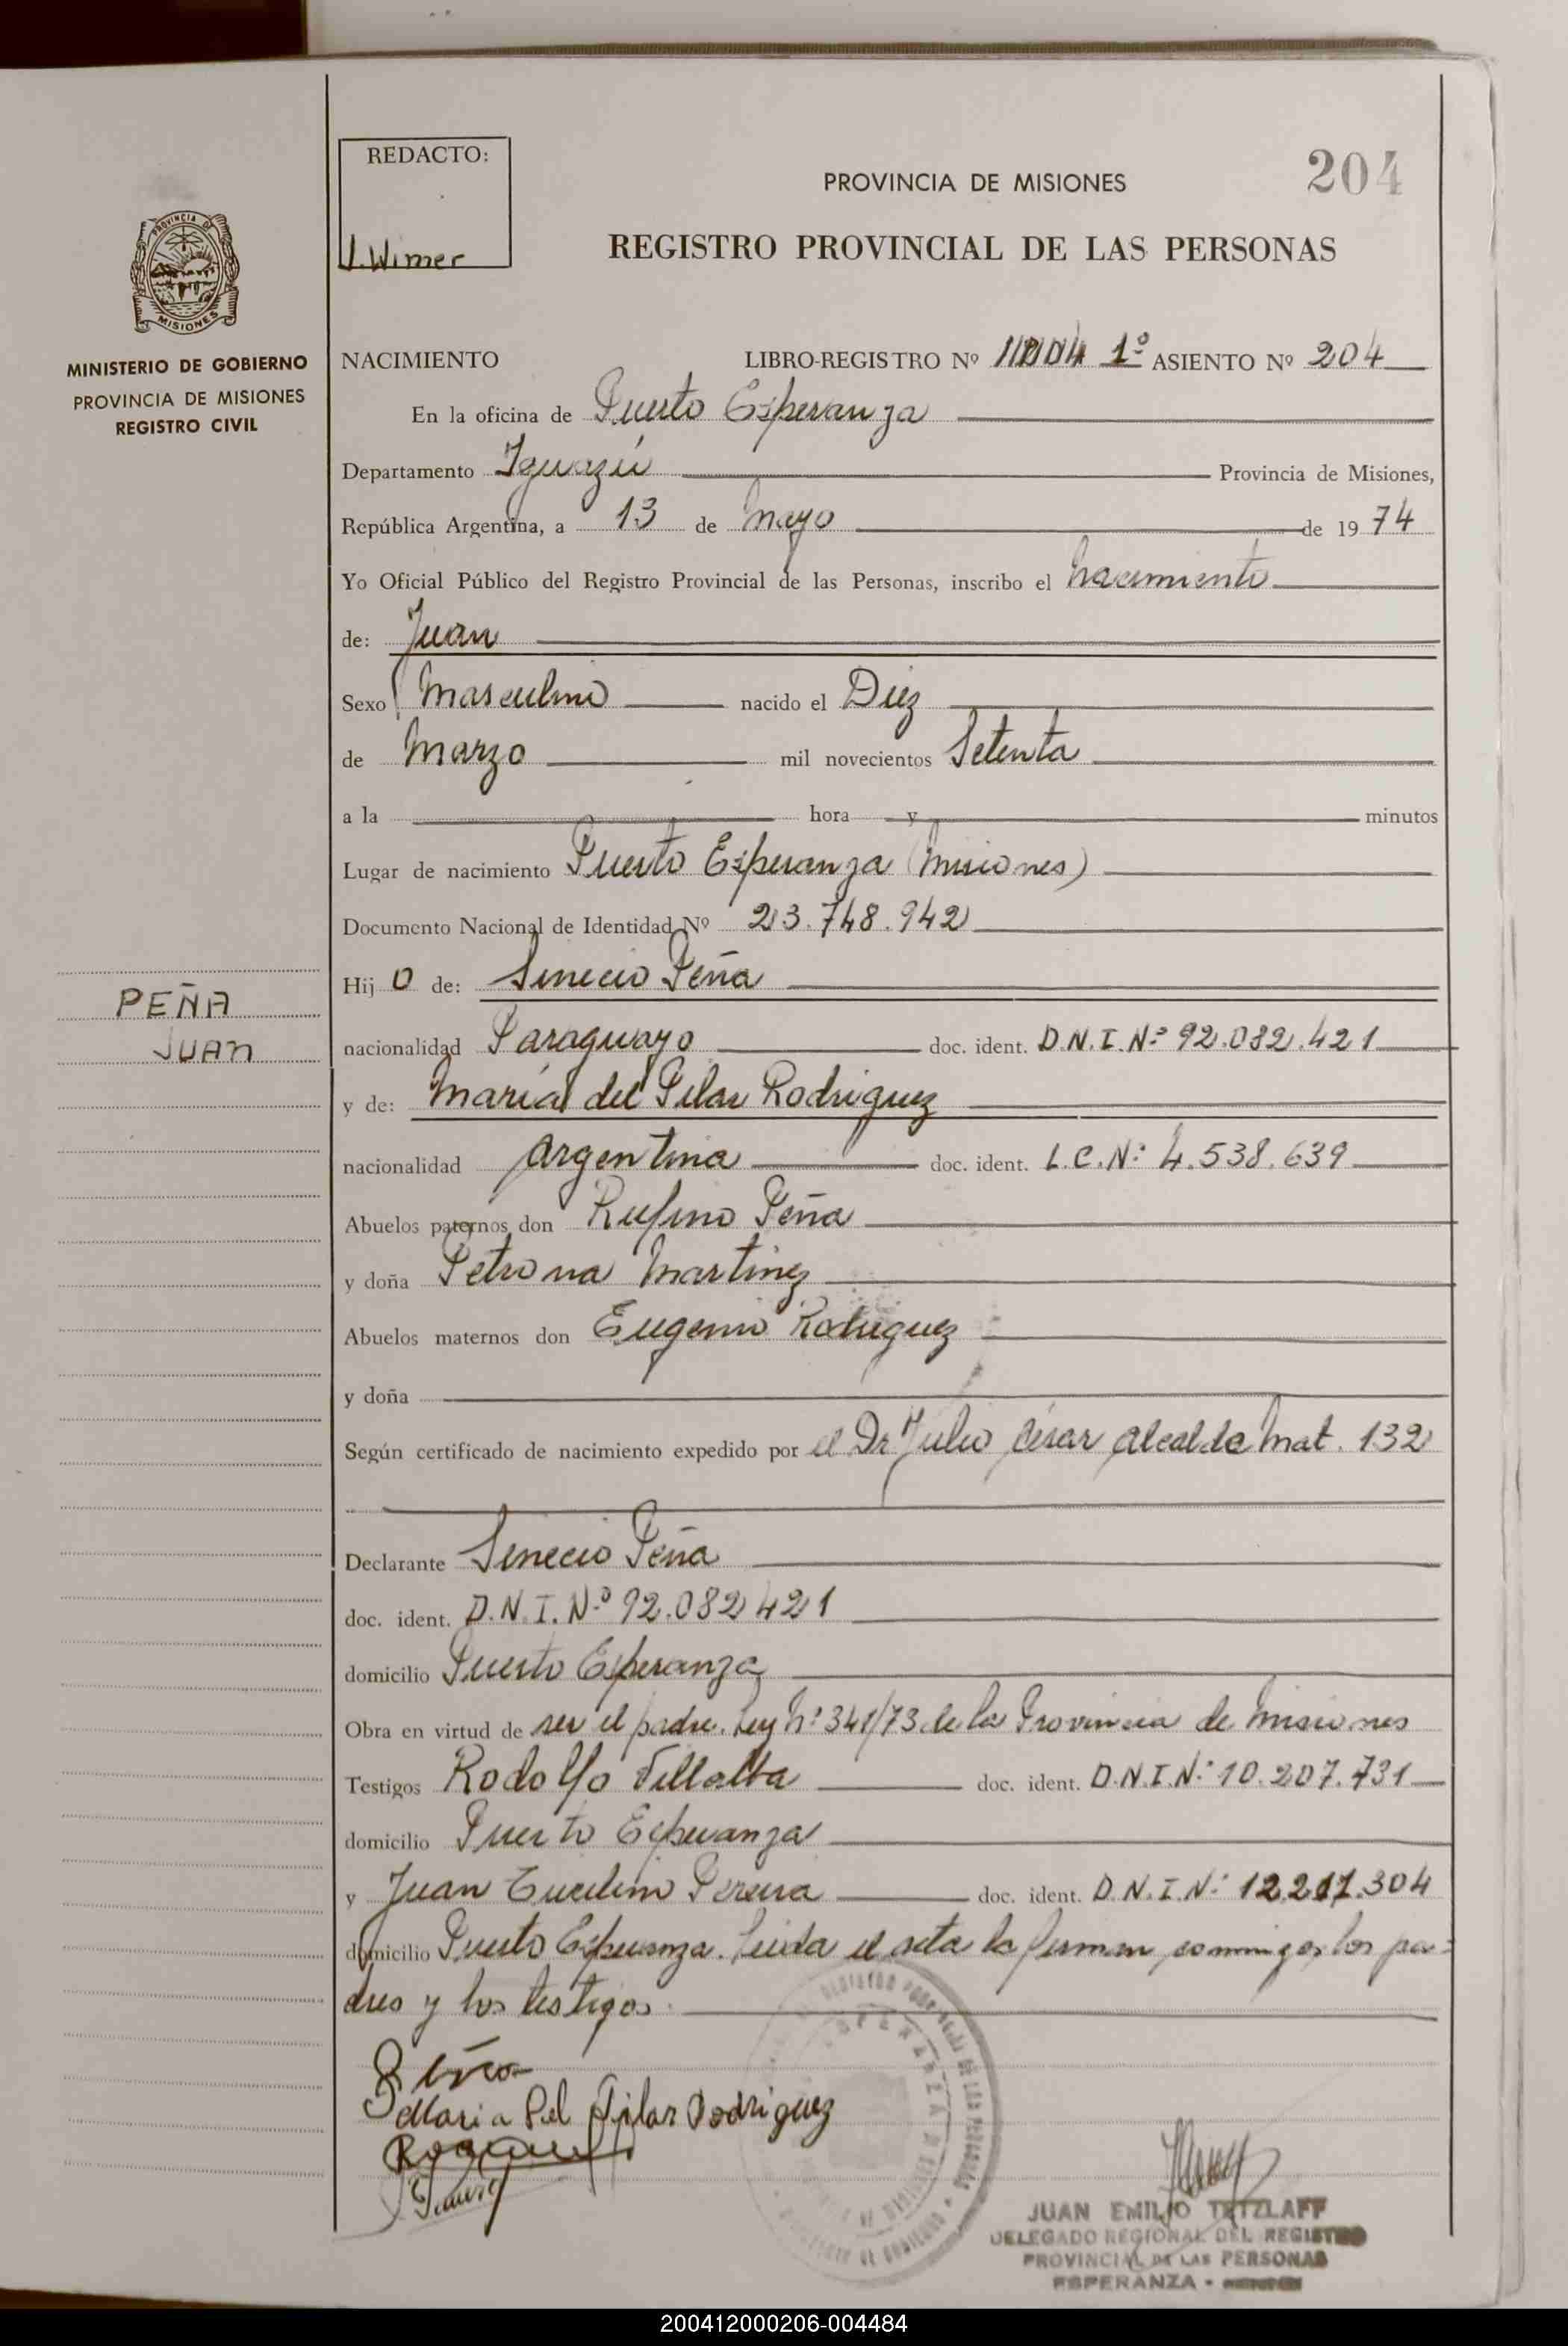 REDACTO:
J. Wimer
PROVINCIA DE MISIONES
204
REGISTRO PROVINCIAL DE LAS PERSONAS
PROVINCIA DE
MISIONES
MINISTERIO DE GOBIERNO
PROVINCIA DE MISIONES
REGISTRO CIVIL
NACIMIENTO LIBRO-REGISTRO Nº 1º ASIENTO Nº 204
En la oficina de Puerto Esperanza
Departamento Iguazú Provincia de Misiones,
República Argentina, a 13 de mayo de 1974
Yo Oficial Público del Registro Provincial de las Personas, inscribo el nacimiento
de: Juan
Sexo Masculino nacido el Diez
de Marzo mil novecientos Setenta
a la hora y minutos
Lugar de nacimiento Puerto Esperanza (Misiones)
Documento Nacional de Identidad Nº 23.748.942
Hijo de: Sinecio Peña
PEÑA
JUAN
nacionalidad Paraguayo doc. ident. D.N.I. Nº 92.082.421
y de: María del Pilar Rodriguez
nacionalidad argentina doc. ident. L.C.Nº 4.538.639
Abuelos paternos don Rufino Peña
y doña Petrona Martinez
Abuelos maternos don Eugenio Rodriguez
y doña
Según certificado de nacimiento expedido por el Dr Julio César Alcalde Mat. 132
Declarante Sinecio Peña
doc. ident. D.N.I. Nº 92.082421
domicilio Puerto Esperanza
Obra en virtud de ser el padre. Ley Nº 341/73 de la Provincia de Misiones
Testigos Rodolfo Villalba doc. ident. D.N.I.Nº 10.207.731
domicilio Puerto Esperanza
y Juan Pereira doc. ident. D.N.I.Nº 12.217.304
domicilio Puerto Esperanza. Leida el acta la firman conmigo, los pa-
dres y los testigos.
Peña
Maria del Pilar Rodriguez
JUAN EMILIO TETZLAFF
DELEGADO REGIONAL DEL REGISTRO
PROVINCIAL DE LAS PERSONAS
ESPERANZA -
200412000206-004484